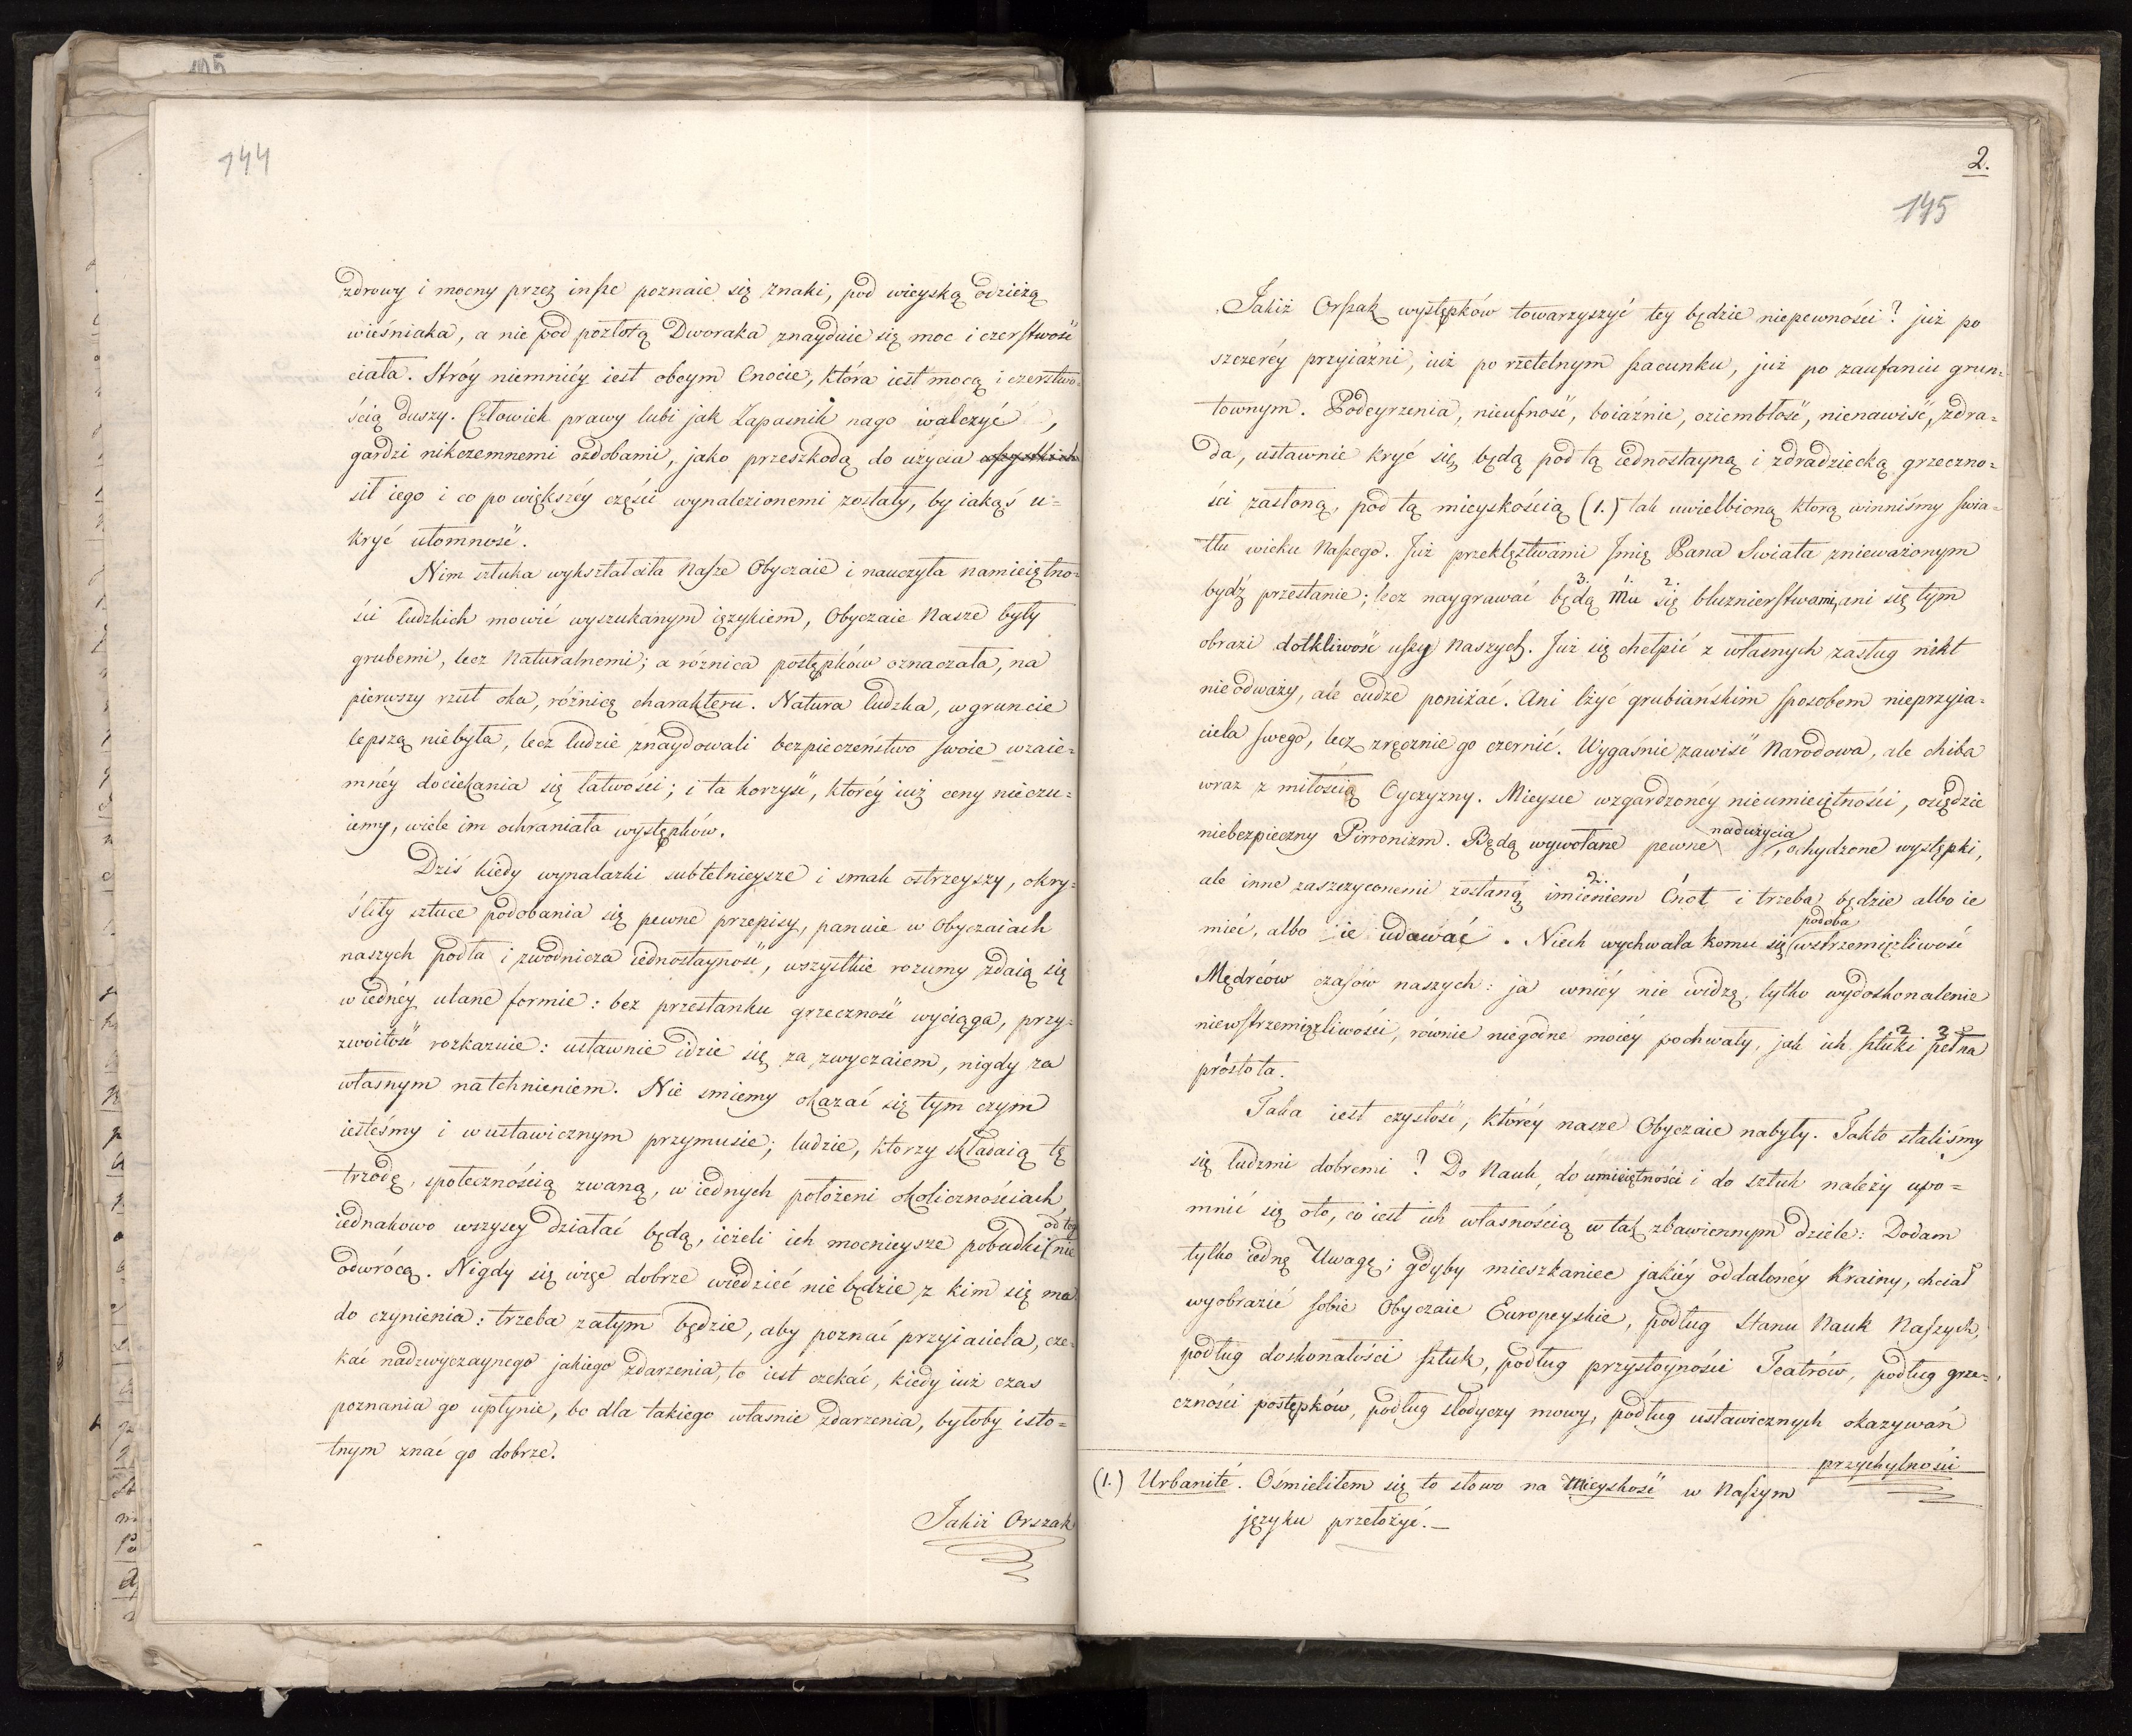 144
zdrowy i mocny przez inſze poznaie się znaki, pod wieyską odzieżą
wieśniaka, a nie pod pozłotą Dworaka znayduie się moc i czerſtwość
ciała. Stróy niemniéy iest obcym Cnocie, która iest mocą i czerstwo=
ścią duszy. Człowiek prawy lubi jak Zapasnik nago walczyć,
gardzi nikczemnemi ozdobami, jako przeszkodą do użycia wſzyſtkich
sił iego i co po większéy części wynalezionemi zostały, by iakąś u=
kryć ułomność.
Nim sztuka wykształciła Naſze Obyczaie i nauczyła namieiętno=
ści ludzkich mowić wyszukanym ięzykiem, Obyczaie Nasze były
grubemi, lecz Naturalnemi; a różnica postępków oznaczała, na
pierwszy rzut oka, różnicę charakteru. Natura ludzka, w gruncie
lepszą niebyła, lecz ludzie znaydowali bezpieczeństwo swoie w wzaie=
mnéy dociekania się łatwości; i ta korzyść, któréy iuż ceny nieczu=
iemy, wiele im ochraniała występków.
Dziś kiedy wynalazki subtelnieysze i smak ostrzeyszy, okry=
śliły sztuce podobania się pewne przepisy, panuie w Obyczaiach
naszych podła i zwodnicza iednostayność, wszystkie rozumy zdaią się
w iednéy ulane formie: bez przestanku grzeczność wyciąga, przy=
zwoitość rozkazuie: ustawnie idzie się za zwyczaiem, nigdy za
własnym natchnieniem. Nie smiemy okazać się tym czym
iesteśmy i w ustawicznym przymusie; ludzie, ktorzy składaią tę
trzodę, społecznością zwaną, w iednych położeni okolicznościach,
iednakowo wszyscy działać będą, ieżeli ich mocnieysze pobudki nie
od tego
odwrócą. Nigdy się więc dobrze wiedzieć nie będzie z kim się ma
do czynienia: trzeba zatym będzie, aby poznać przyiaciela, cze=
kać nadzwyczaynego jakiego zdarzenia, to iest czekać, kiedy iuż czas
poznania go upłynie, bo dla takiego własnie zdarzenia, byłoby isto=
tnym znać go dobrze.
Jakiż Orszak
2.
145
Jakiż Orſzak występków towarzyszyć tey będzie niepewności? już po
szczeréy przyiaźni, iuż po rzetelnym ſzacunku, już po zaufaniu grun=
townym. Podeyrzenia, nieufność, boiaźnie, oziembłość, nienawiść, zdra=
da, ustawnie kryć się będą pod tą iednostayną i zdradziecką grzeczno=
ści zasłoną, pod tą mieyskością (1.) tak uwielbioną ktorą winniśmy ſwia=
tłu wieku Naſzego. Już przeklęztwami Imię Pana Swiata znieważonym
bydź przestanie; lecz naygrawać będą mu się bluznierſtwami, ani się tym
3. 1. 2.
obrazi dotkliwość uſzy Naszych. Już się chełpić z własnych zasług nikt
nie odważy, ale cudze poniżać. Ani lżyć grubiańskim ſposobem nieprzyia=
ciela ſwego, lecz zręcznie go czernić. Wygaśnie zawiść Narodowa, ale chiba
wraz z miłością Oyczyzny. Mieysce wzgardzonéy nieumieiętności, osiędzie
niebezpieczny Pirronizm. Będą wywołane pewne nadużycia, ochydzone występki,
ale inne zaszczyconemi zostaną imieniem Cnot i trzeba będzie albo ie
2.
mieć, albo ie udawać. Niech wychwala komu się podoba wstrzemięzliwość
Mędrców czaſów naszych: ja wniéy nie widzę, tylko wydoskonalenie
niewſtrzemięzliwości, równie niegodne moiéy pochwały, jak ich ſztuki pełna
prostota.
Taka iest czystość, któréy nasze Obyczaie nabyły. Takto staliśmy
się ludzmi dobremi? Do Nauk, do umieiętności i do sztuk należy upo=
mnić się oto, co iest ich własnością w tak zbawiennym dziele: Dodam
tylko iednę Uwagę; gdyby mieszkaniec jakiéy oddalonéy Krainy, chciał
wyobrazić ſobie Obyczaie Europeyskie, podług Stanu Nauk Naſzych,
podług doskonałości ſztuk, podług przystoyności Teatrów, podług grze=
czności postępków, podług słodyczy mowy, podług ustawicznych okazywań
przychylności
(1.) Urbanité. Ośmieliłem się to słowo na Mieyskość w Naſzym
języku przełożyć.—